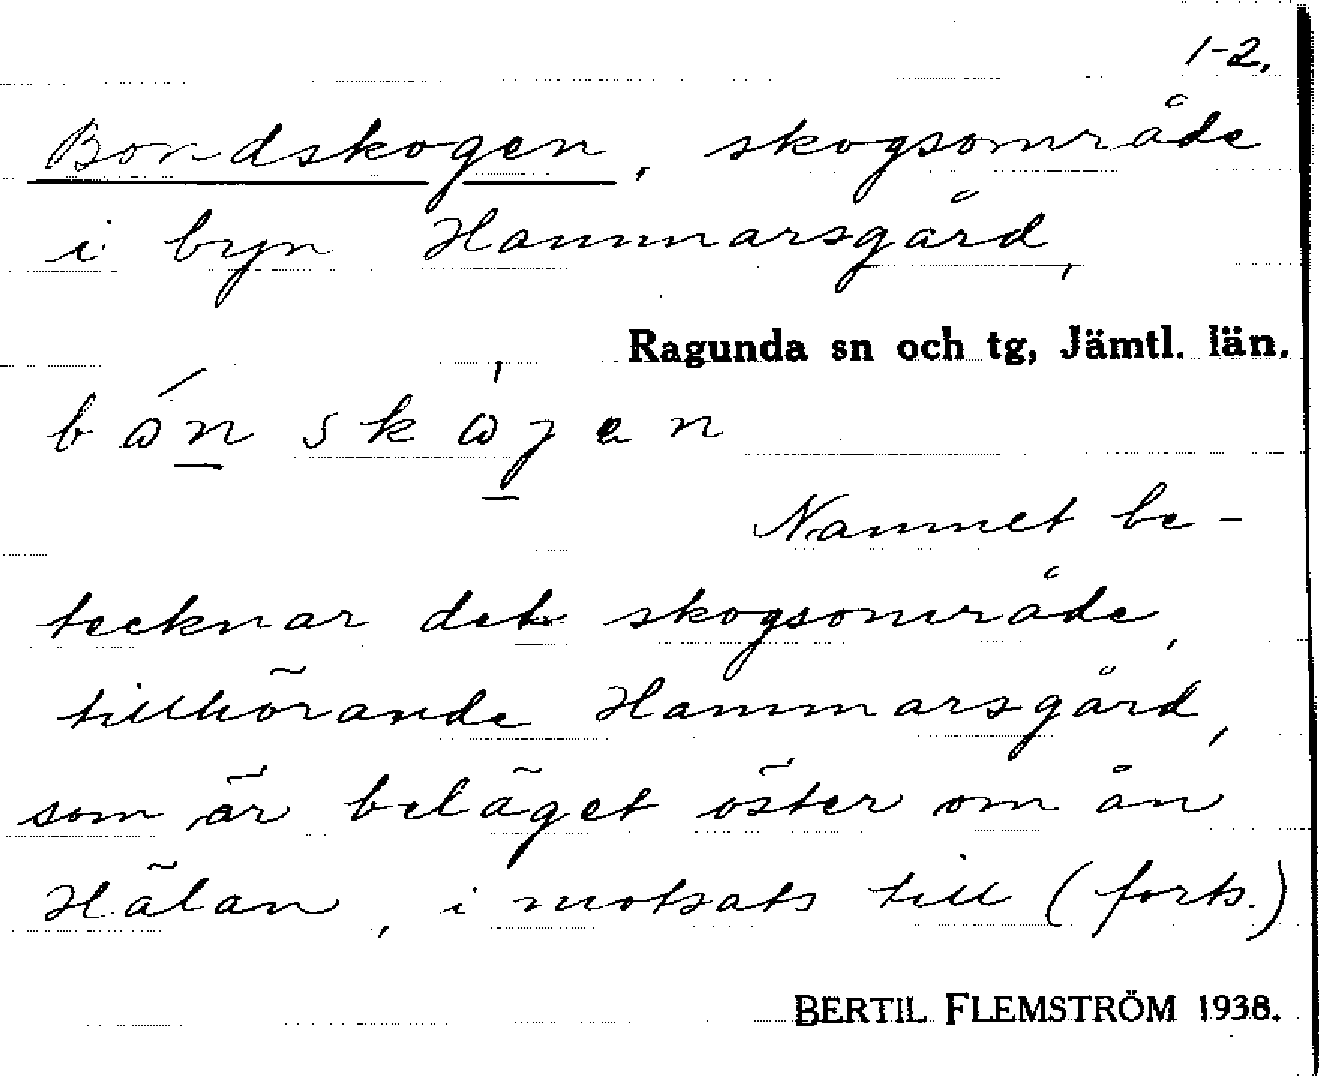 1-2.
Bondskogen, skogsområde
i byn Hammarsgård,
Ragunda sn och tg, Jämtl. län.
Namnet be-
tecknar det skogsområde,
tillhörande Hammarsgård,
som är beläget öster om ån
Hälan, i motsats till (forts.)
BERTIL FLEMSTRÖM 1938.